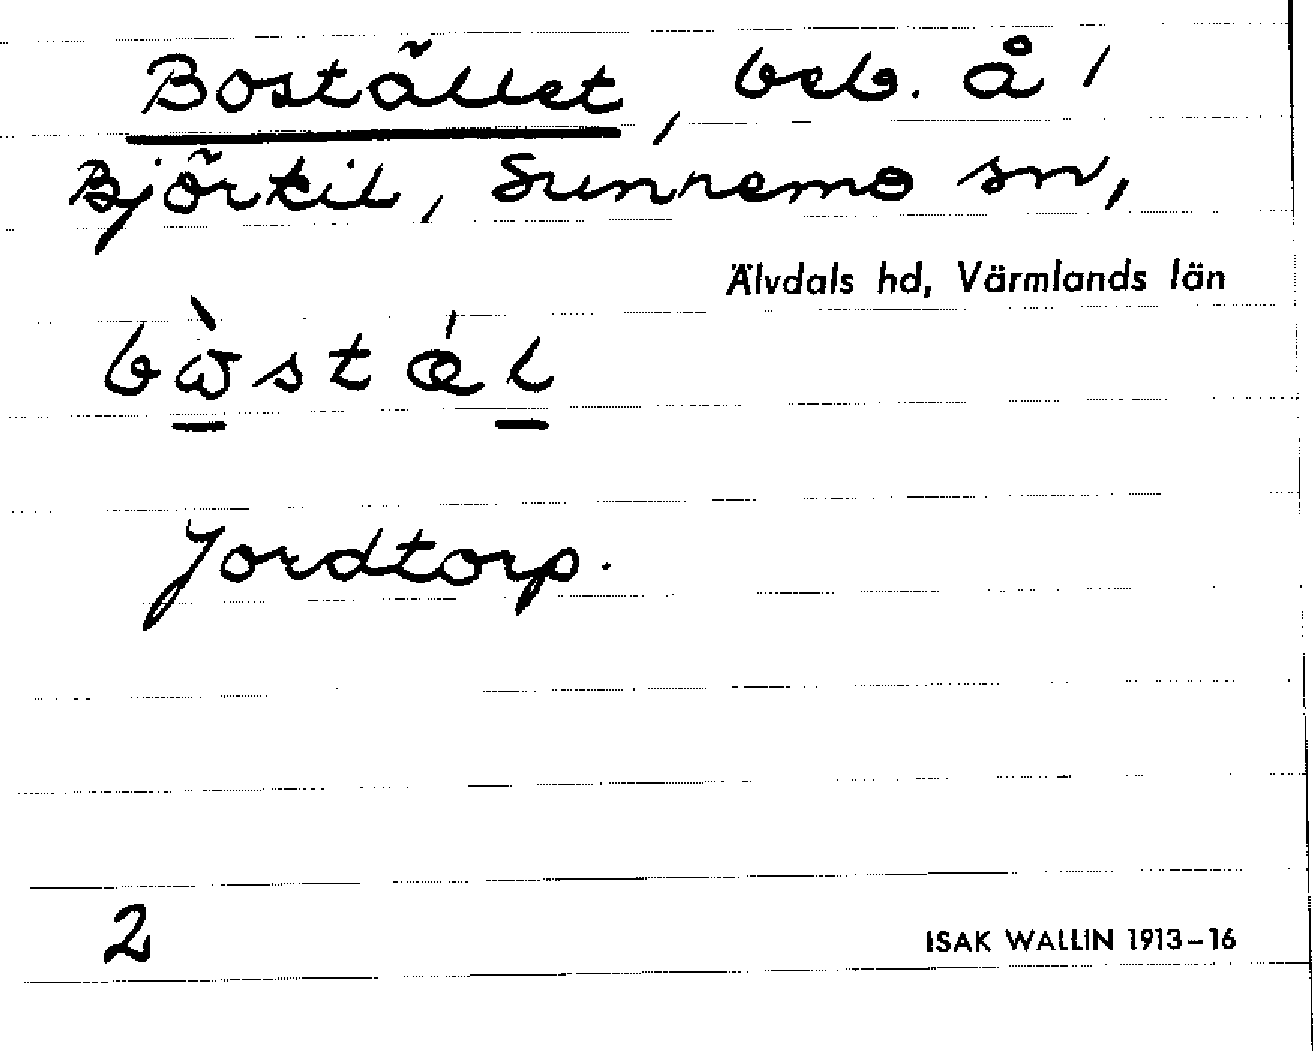 Bostället, beb. å 1
Björkil, Sunnemo sn,
Älvdals hd, Värmlands län
bὼstǽl
Jordtorp.
2
ISAK WALLIN 1913-16